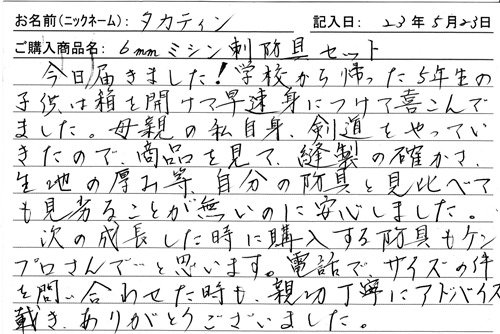 お名前(ニックネーム): タカティン 記入日: 23年5月23日
ご購入商品名: 6mmミシン刺防具セット
今日届きました！学校から帰った5年生の
子供は箱を開けて早速身につけて喜こんで
ました。母親の私自身、剣道をやってい
きたので、商品を見て、縫製の確かさ、
生地の厚み等、自分の防具と見比べて
も見劣ることが無いのに安心しました。
次の成長した時に購入する防具もケン
プロさんでと思います。電話でサイズの件
を問い合わせた時も、親切丁寧にアドバイス
載き、ありがとうございました。